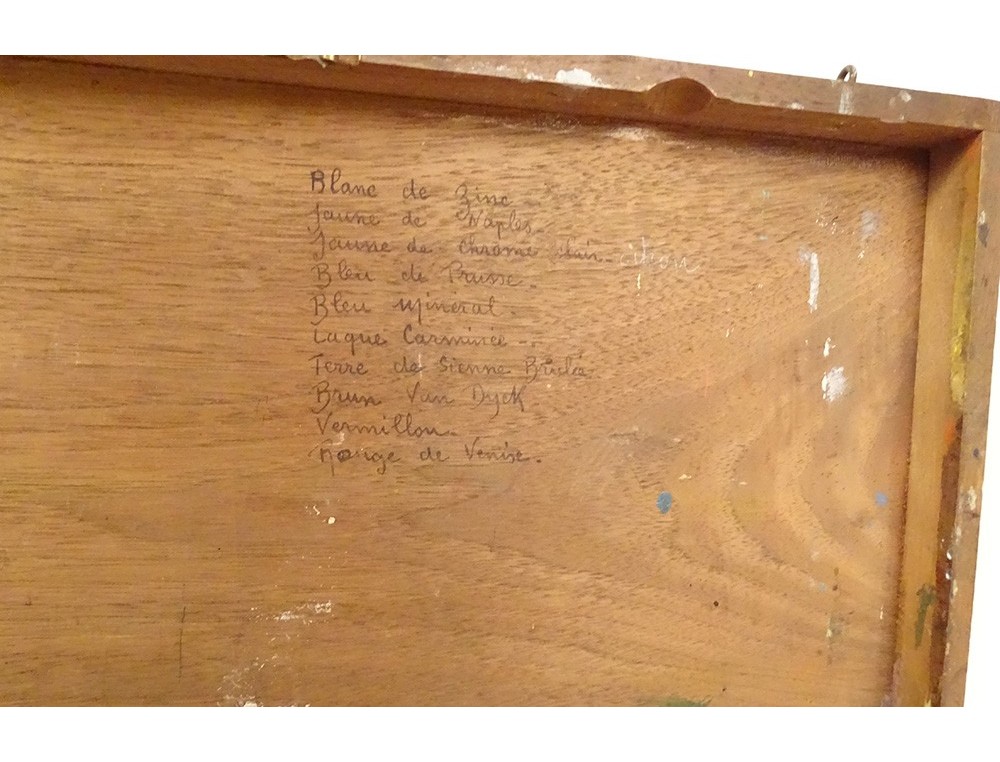 Blanc de Zinc -
Jaune de Naples.
Jaune de Chrome clair - citron
Bleu de Prusse.
Bleu Minéral.
Laque Carminée -.
Terre de Sienne Brulée
Brun Van Dyck
Vermillon.
Rouge de Venise.